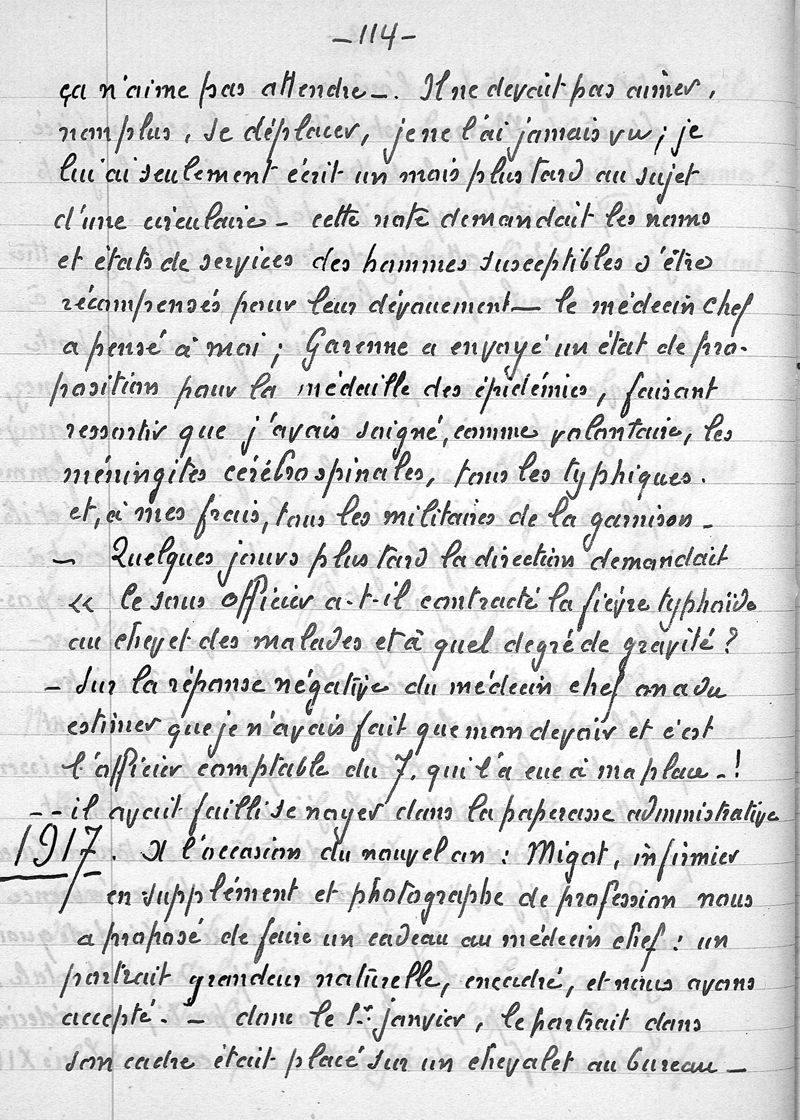 -114-
ça n'aime pas attendre_. Il ne devait pas aimer,
non plus, se déplacer, je ne l'ai jamais vu ; je
lui ai seulement écrit un mois plus tard au sujet
d'une circulaire _ cette note demandait les noms
et états de services des hommes susceptibles d'être
récompensés pour leur dévouement _ le médecin chef
a pensé à moi ; Garenne a envoyé un état de pro-
position pour la médaille des épidémies, faisant
ressortir que j'avais soigné, comme volontaire, les
méningites cérébro spinales, tous les typhiques.
et, à mes frais, tous les militaires de la garnison _
_ Quelques jours plus tard la direction demandait
« le sous officier a-t-il contracté la fièvre typhoïde
au chevet des malades et à quel degré de gravité ?
_ Sur la réponse négative du médecin chef on a du
estimer que je n'avais fait que mon devoir et c'est
l'officier comptable du 7. qui l'a eue à ma place _!
_ _ il avait failli se noyer dans la paperasse administrative
1917. A l'occasion du nouvel an : Migot, infirmier
en supplément et photographe de profession nous
a proposé de faire un cadeau au médecin chef : un
portrait grandeur naturelle, encadré, et nous avons
accepté. _ donc le 1er janvier, le portrait dans
son cadre était placé sur un chevalet au bureau _